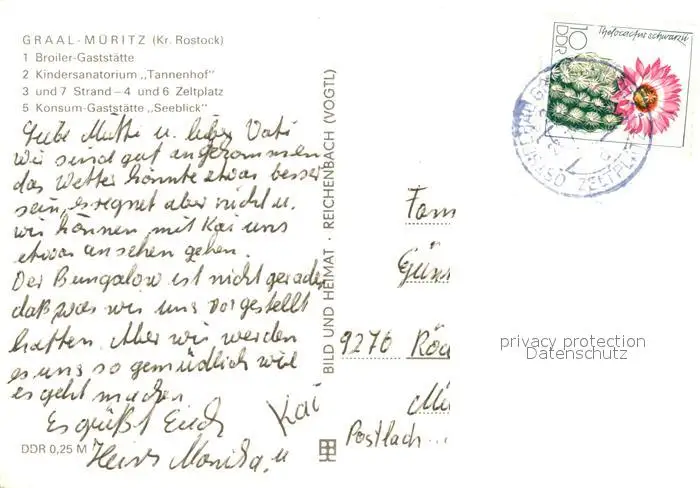 GRAAL-MÜRITZ (Kr. Rostock)
1 Broiler-Gaststätte
2 Kindersanatorium „Tannenhof"
3 und 7 Strand – 4 und 6 Zeltplatz
5 Konsum-Gaststätte „Seeblick"
Liebe Mutti u. lieber Vati
wir sind gut angekommen
das Wetter könnte etwas besser
sein, es regnet aber nicht u.
wir können mit Kai uns
etwas ansehen gehen.
Der Bungalow ist nicht gerade
daß was wir uns vorgestellt
hatten. Aber wir werden
es uns so gemüdlich wie
es geht machen
Es grüßt Euch
Heinz Monika u
Kai
DDR 0,25 M
BILD UND HEIMAT · REICHENBACH (VOGTL)
10
DDR
Thelocactus schwarzii
OSTSEE ZELTPLATZ
Fam
Günt
9276 Röd
Postlach...
privacy protection
Datenschutz